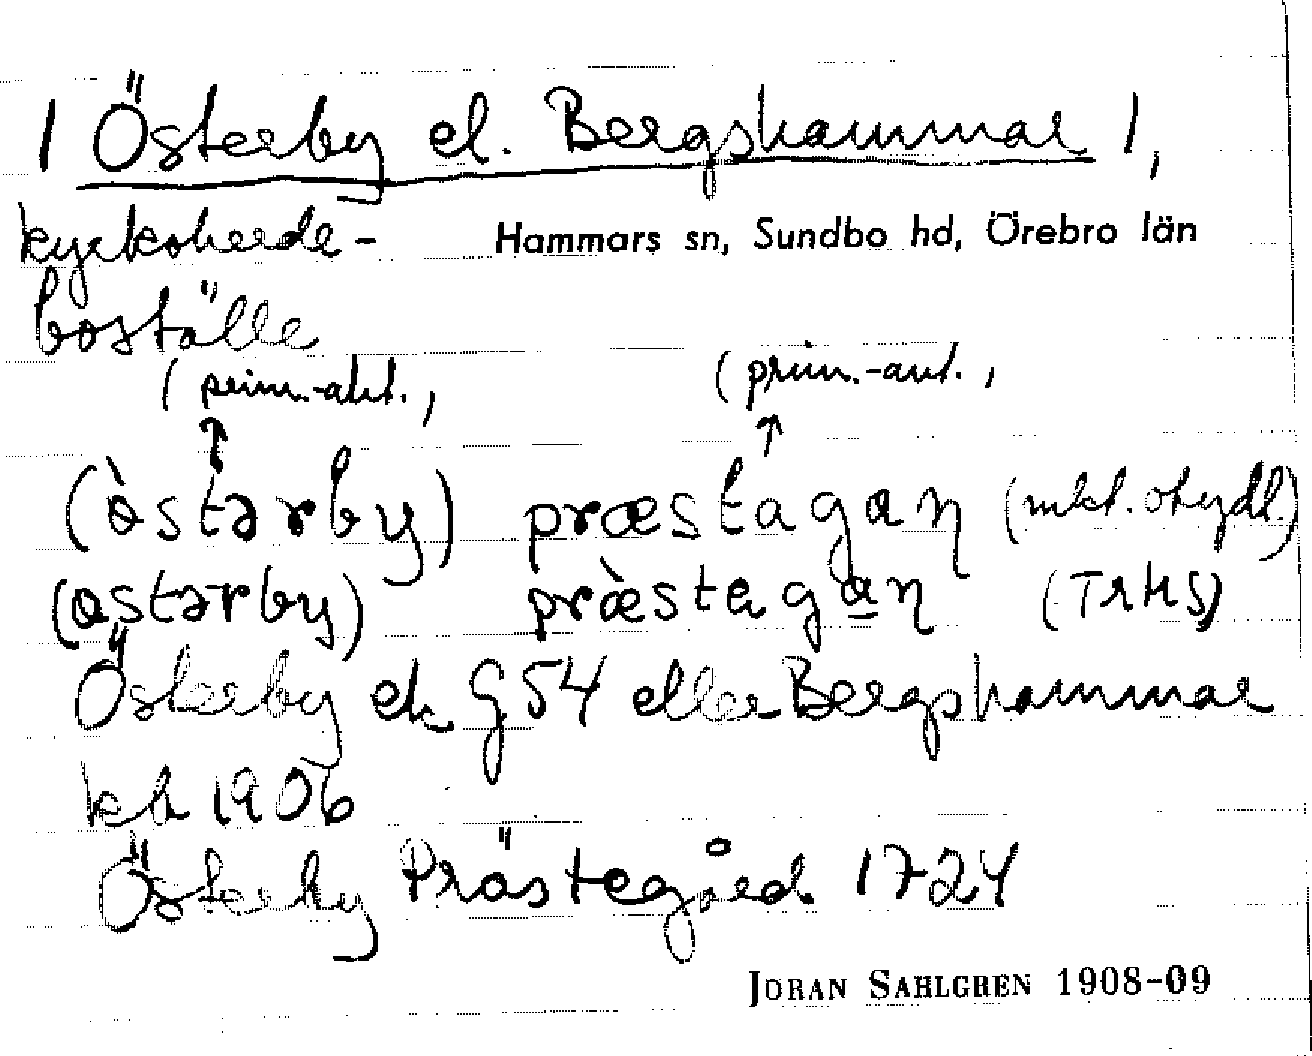 1 Österby el. Bergshammar 1,
kyrkoherde- Hammars sn, Sundbo hd, Örebro län
boställe
(prim.-akt., (prim.-ant.,
↑ ↑
(òstərby) præstagaɳ (mkt. otydl.)
(ɷstərby) præ̀stagaɳ (TrHS)
Österby ek G 54 eller Bergshammar
kb 1906
Österby Prästegård 1724
JÖRAN SAHLGREN 1908-09